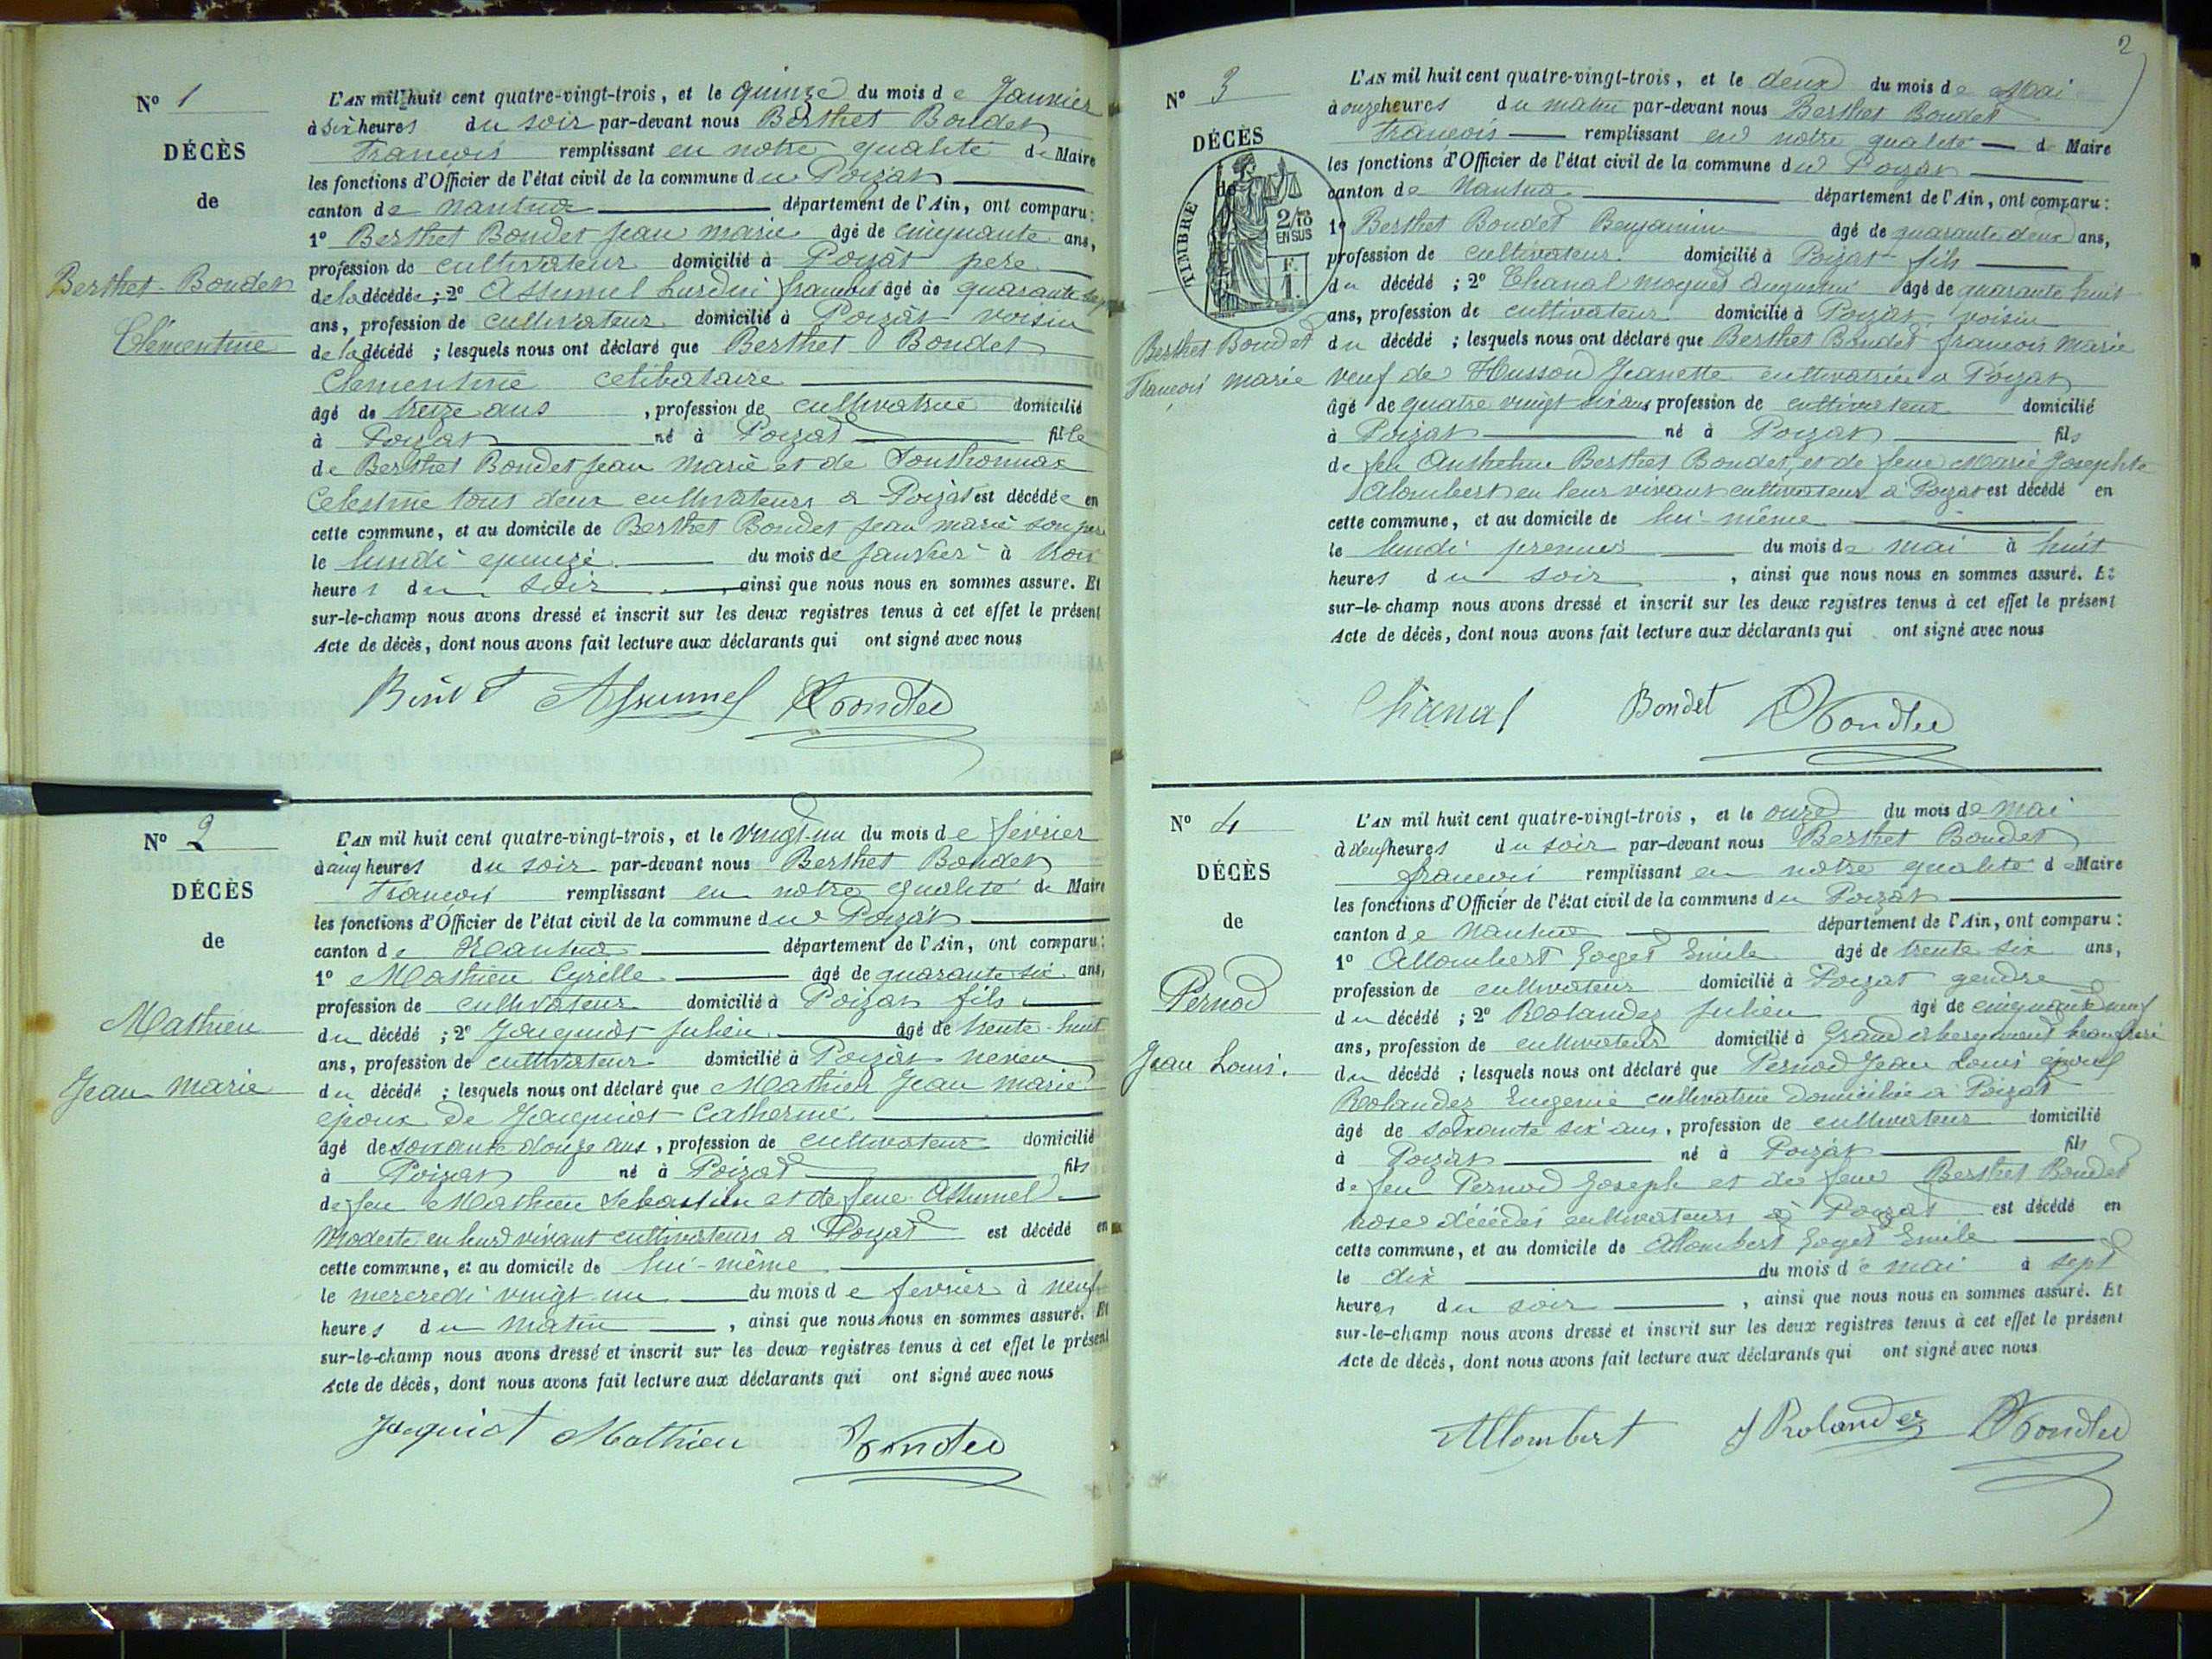 N° 1
DÉCÈS
de
Berthet-Bondet
Clémentine
L'AN mil huit cent quatre-vingt-trois, et le quinze du mois de Janvier
à six heures du soir par-devant nous Berthet Bondet
François remplissant en notre qualité de Maire
les fonctions d'Officier de l'état civil de la commune du Poizat
canton de nantua département de l'Ain, ont comparu:
1° Berthet Bondet Jean marie âgé de cinquante ans,
profession de cultivateur domicilié à Poizat père
de la décédée; 2° Assumel Lurdin françois âgé de quarante
ans, profession de cultivateur domicilié à Poizat voisin
de la décédé ; lesquels nous ont déclaré que Berthet Bondet
Clementine celibataire
âgé de treize ans, profession de cultivatrice domicilié
à Poizat né à Poizat fille
de Berthet Bondet Jean Marie et de
Celestine tous deux cultivateurs a Poizat est décédée en
cette commune, et au domicile de Berthet Bondet Jean marie son père
le lundi quinze du mois de Janvier à trois
heures du soir, ainsi que nous nous en sommes assuré. Et
sur-le-champ nous avons dressé et inscrit sur les deux registres tenus à cet effet le présent
Acte de décès, dont nous avons fait lecture aux déclarants qui ont signé avec nous
Assumel Bondet
N° 2
DÉCÈS
de
Mathieu
Jean marie
L'AN mil huit cent quatre-vingt-trois, et le vingt-un du mois de février
à cinq heures du soir par-devant nous Berthet Bondet
François remplissant en notre qualité de Maire
les fonctions d'Officier de l'état civil de la commune du Poizat
canton de Nantua département de l'Ain, ont comparu:
1° Mathieu Cyrille âgé de quarante six ans,
profession de cultivateur domicilié à Poizat fils
du décédé ; 2° Jacquiot Julien âgé de trente-huit
ans, profession de cultivateur domicilié à Poizat neveu
du décédé ; lesquels nous ont déclaré que Mathieu Jean marie
époux de Jacquiot Catherine
âgé de soixante douze ans, profession de cultivateur domicilié
à Poizat né à Poizat fils
de feu Mathieu Sebastien et de feue Assumel
Modeste en leur vivant cultivateurs a Poizat est décédé en
cette commune, et au domicile de lui-même
le mercredi vingt-un du mois de fevrier à neuf
heures du matin, ainsi que nous nous en sommes assuré. Et
sur-le-champ nous avons dressé et inscrit sur les deux registres tenus à cet effet le présent
Acte de décès, dont nous avons fait lecture aux déclarants qui ont signé avec nous
Jaquiot Mathieu Bondet
2
N° 3
DÉCÈS
de
TIMBRE
2/10
EN SUS
F.
1.
Berthet Bondet
François marie
L'AN mil huit cent quatre-vingt-trois, et le deux du mois de Mai
à onze heures du matin par-devant nous Berthet Bondet
François remplissant en notre qualité de Maire
les fonctions d'Officier de l'état civil de la commune du Poizat
canton de Nantua département de l'Ain, ont comparu:
1° Berthet Bondet Benjamin âgé de quarante deux ans,
profession de cultivateur domicilié à Poizat fils
du décédé ; 2° Chanal moquet Augustin âgé de quarante huit
ans, profession de cultivateur domicilié à Poizat voisin
du décédé ; lesquels nous ont déclaré que Berthet Bondet françois Marie
veuf de Husson Jeanette cultivatrice a Poizat
âgé de quatre vingt six ans profession de cultivateur domicilié
à Poizat né à Poizat fils
de feu Anthelme Berthet Bondet, et de feue Marie Josephte
Alombert en leur vivant cultivateur a Poizat est décédé en
cette commune, et au domicile de lui-même
le lundi premier du mois de mai à huit
heures du soir, ainsi que nous nous en sommes assuré. Et
sur-le-champ nous avons dressé et inscrit sur les deux registres tenus à cet effet le présent
Acte de décès, dont nous avons fait lecture aux déclarants qui ont signé avec nous
Chanal Bondet Bondet
N° 4
DÉCÈS
de
Pernod
Jean Louis.
L'AN mil huit cent quatre-vingt-trois, et le onze du mois de mai
à heures du soir par-devant nous Berthet Bondet
françois remplissant en notre qualité de Maire
les fonctions d'Officier de l'état civil de la commune du Poizat
canton de Nantua département de l'Ain, ont comparu:
1° Allombert Goget Emile âgé de trente six ans,
profession de cultivateur domicilié à Poizat gendre
du décédé ; 2° Rolandez Julien âgé de cinquante neuf
ans, profession de cultivateur domicilié à Grand abergement beau frère
du décédé ; lesquels nous ont déclaré que Pernod Jean Louis époux
Rolandez Eugenie cultivatrice domiciliée a Poizat
âgé de soixante six ans, profession de cultivateur domicilié
à Poizat né à Poizat fils
de feu Pernod Joseph et de feue Berthet Bondet
rose décédés cultivateurs à Poizat est décédé en
cette commune, et au domicile de Allombert Goget Emile
le dix du mois de mai à sept
heures du soir, ainsi que nous nous en sommes assuré. Et
sur-le-champ nous avons dressé et inscrit sur les deux registres tenus à cet effet le présent
Acte de décès, dont nous avons fait lecture aux déclarants qui ont signé avec nous
Allombert J Rolandez Bondet